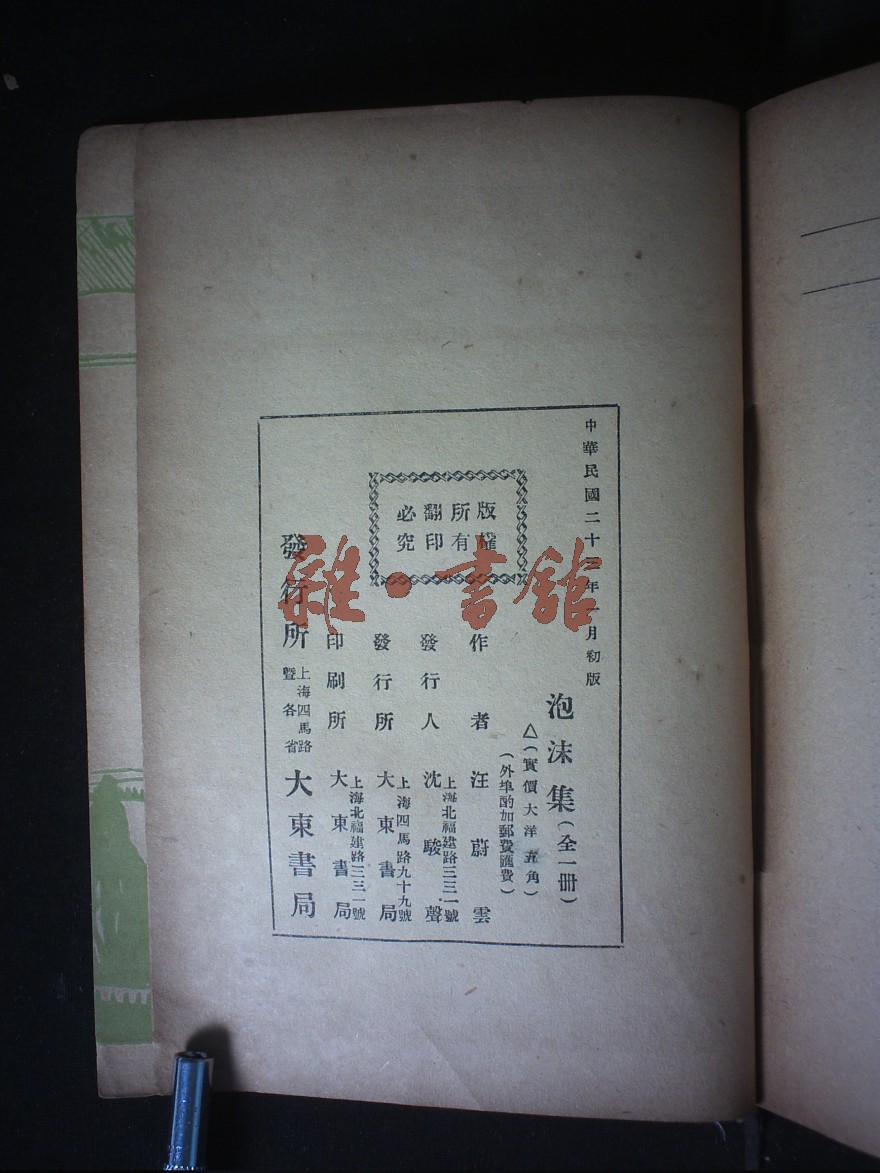 中華民國二十三年一月初版
泡沫集(全一冊)
△(實價大洋五角)
(外埠酌加郵費匯費)
版權
所有
翻印
必究
作者 汪蔚雲
發行人 沈駿聲
上海北福建路三三一號
發行所 大東書局
上海四馬路九十九號
印刷所 大東書局
上海北福建路三三一號
發行所 大東書局
上海四馬路
暨各省
雜·書館